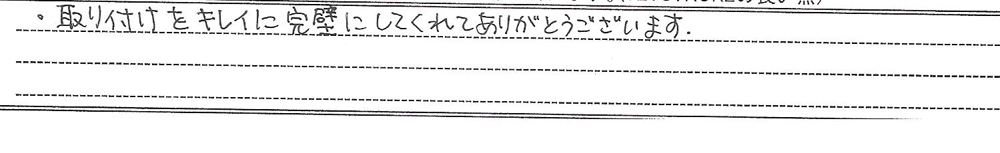 ・取り付けをキレイに完璧にしてくれてありがとうございます.